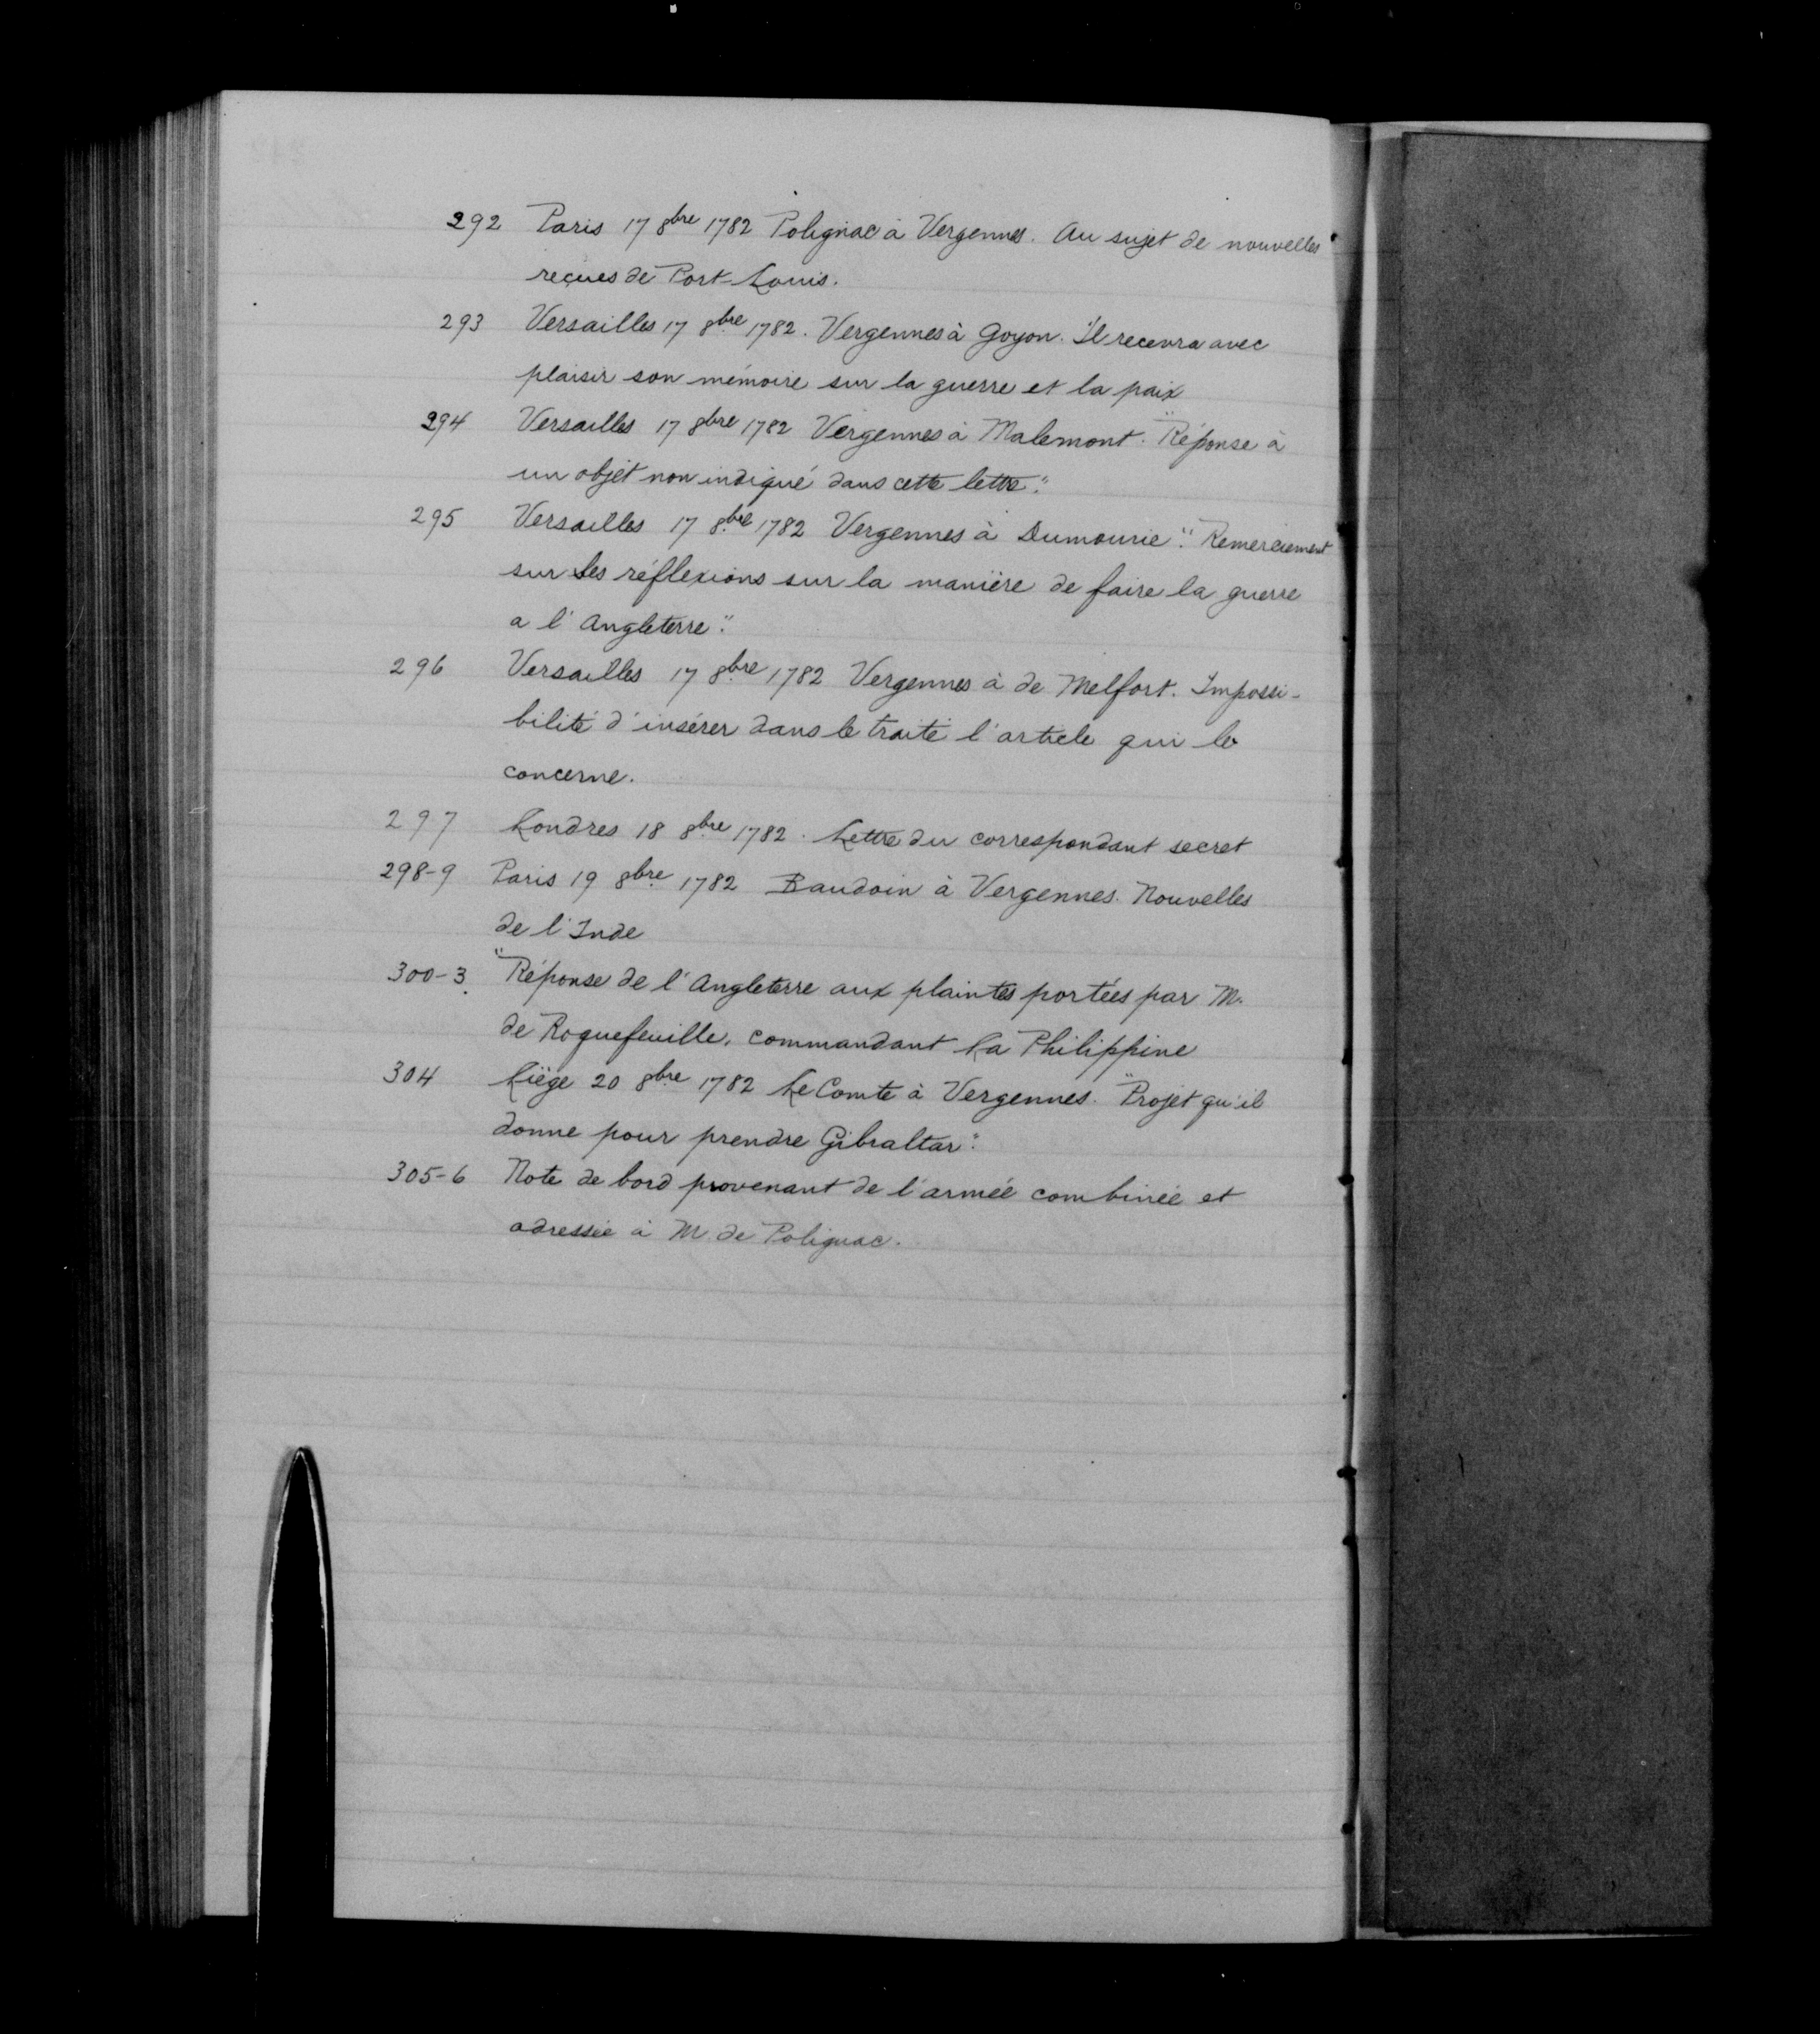 292 Paris 17 8bre 1782 Polignac à Vergennes. Au sujet de nouvelles
reçues de Port-Louis.
293 Versailles 17 8bre 1782. Vergennes à Goyon. Il recevra avec
plaisir son mémoire sur la guerre et la paix
294 Versailles 17 8bre 1782 Vergennes à Malemont. "Réponse à
un objet non indiqué dans cette lettre."
295 Versailles 17 8bre 1782 Vergennes à Dumourie". Remerciement
sur les réflexions sur la manière de faire la guerre
a l'Angleterre".
296 Versailles 17 8bre 1782 Vergennes à de Melfort. Impossi-
bilité d'insérer dans le traité l'article qui le
concerne.
297 Londres 18 8bre 1782. Lettre du correspondant secret
298-9 Paris 19 8bre 1782 Baudoin à Vergennes. Nouvelles
de l'Inde
300-3. "Réponse de l'Angleterre aux plaintes portées par M.
de Roquefeuille, commandant La Philippine
304 Liège 20 8bre 1782 Le Comte à Vergennes. "Projet qu'il
donne pour prendre Gibraltar".
305-6 Note de bord provenant de l'armée combinée et
adressée à M. de Polignac.